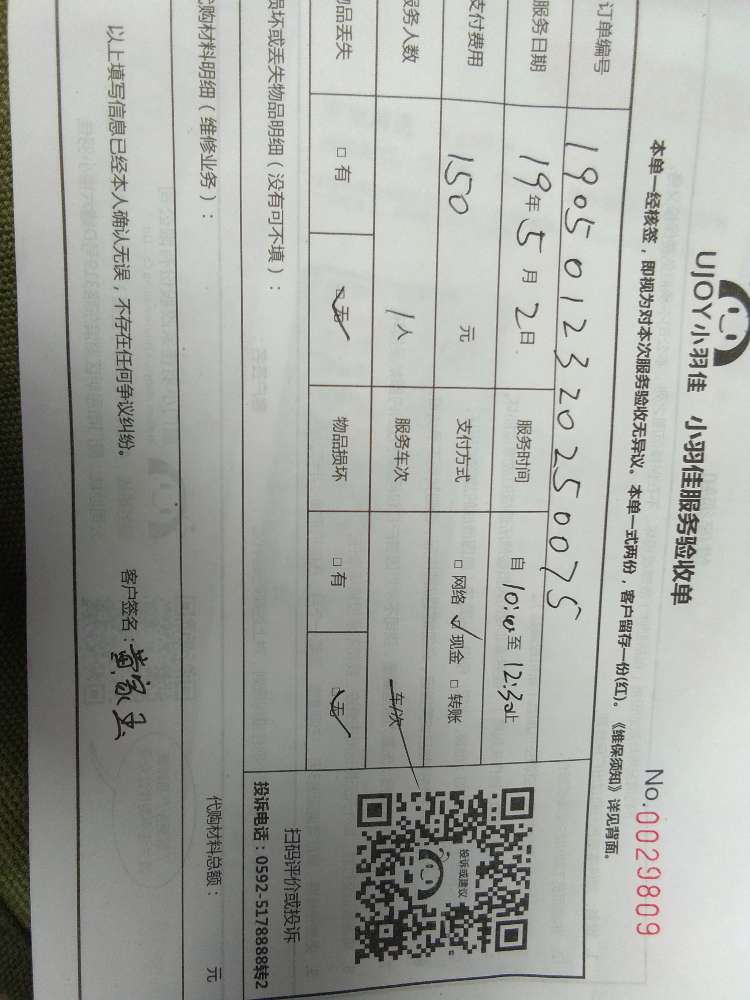 UJOY小羽佳 小羽佳服务验收单
No.0029809
本单一经核签，即视为对本次服务验收无异议。本单一式两份，客户留存一份(红)。《维保须知》详见背面。
订单编号 1905012320250075
服务日期 19年5月2日 服务时间 自10:00至12:30止
支付费用 150 元 支付方式 □网络 ☑现金 □转账
服务人数 1人 服务车次 车/次
物品丢失 □有 ☑无 物品损坏 □有 ☑无
投诉或建议
扫码评价或投诉
投诉电话：0592-5178888转2
损坏或丢失物品明细（没有可不填）：
代购材料明细（维修业务）： 代购材料总额： 元
以上填写信息已经本人确认无误，不存在任何争议纠纷。 客户签名：黄家